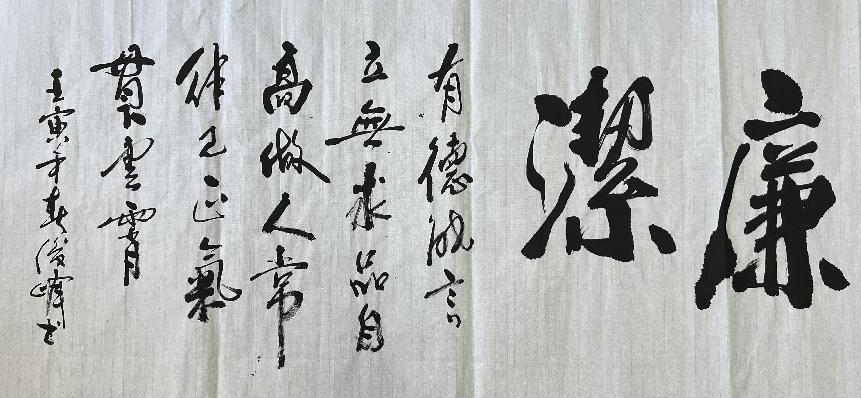 廉潔
有德誠言
立無求品自
高做人常
律己正氣
貫雲霄
壬寅年春俊峰書